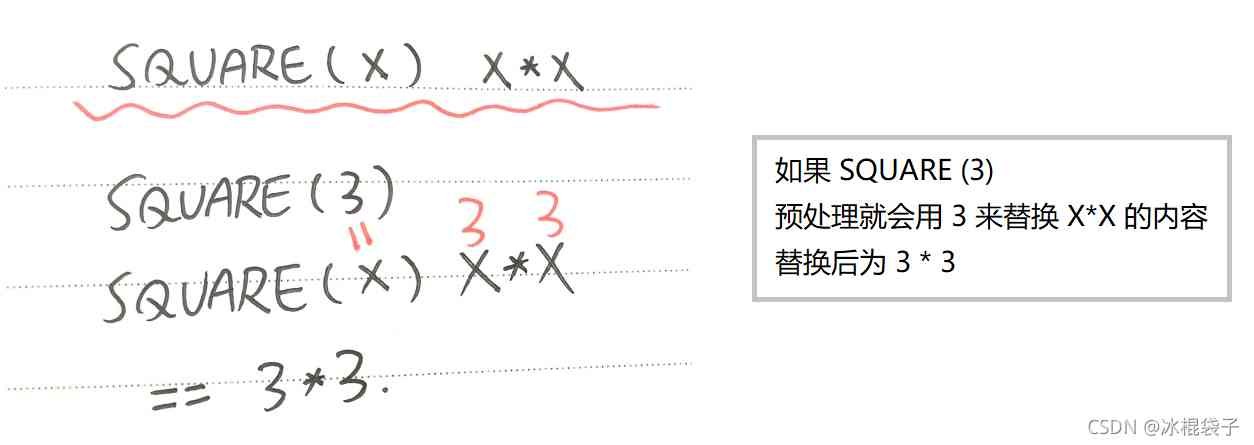 SQUARE(X) X*X
SQUARE(3)
3 3
SQUARE(X) X*X
== 3*3.
如果 SQUARE (3)
预处理就会用 3 来替换 X*X 的内容
替换后为 3 * 3
CSDN @冰棍袋子